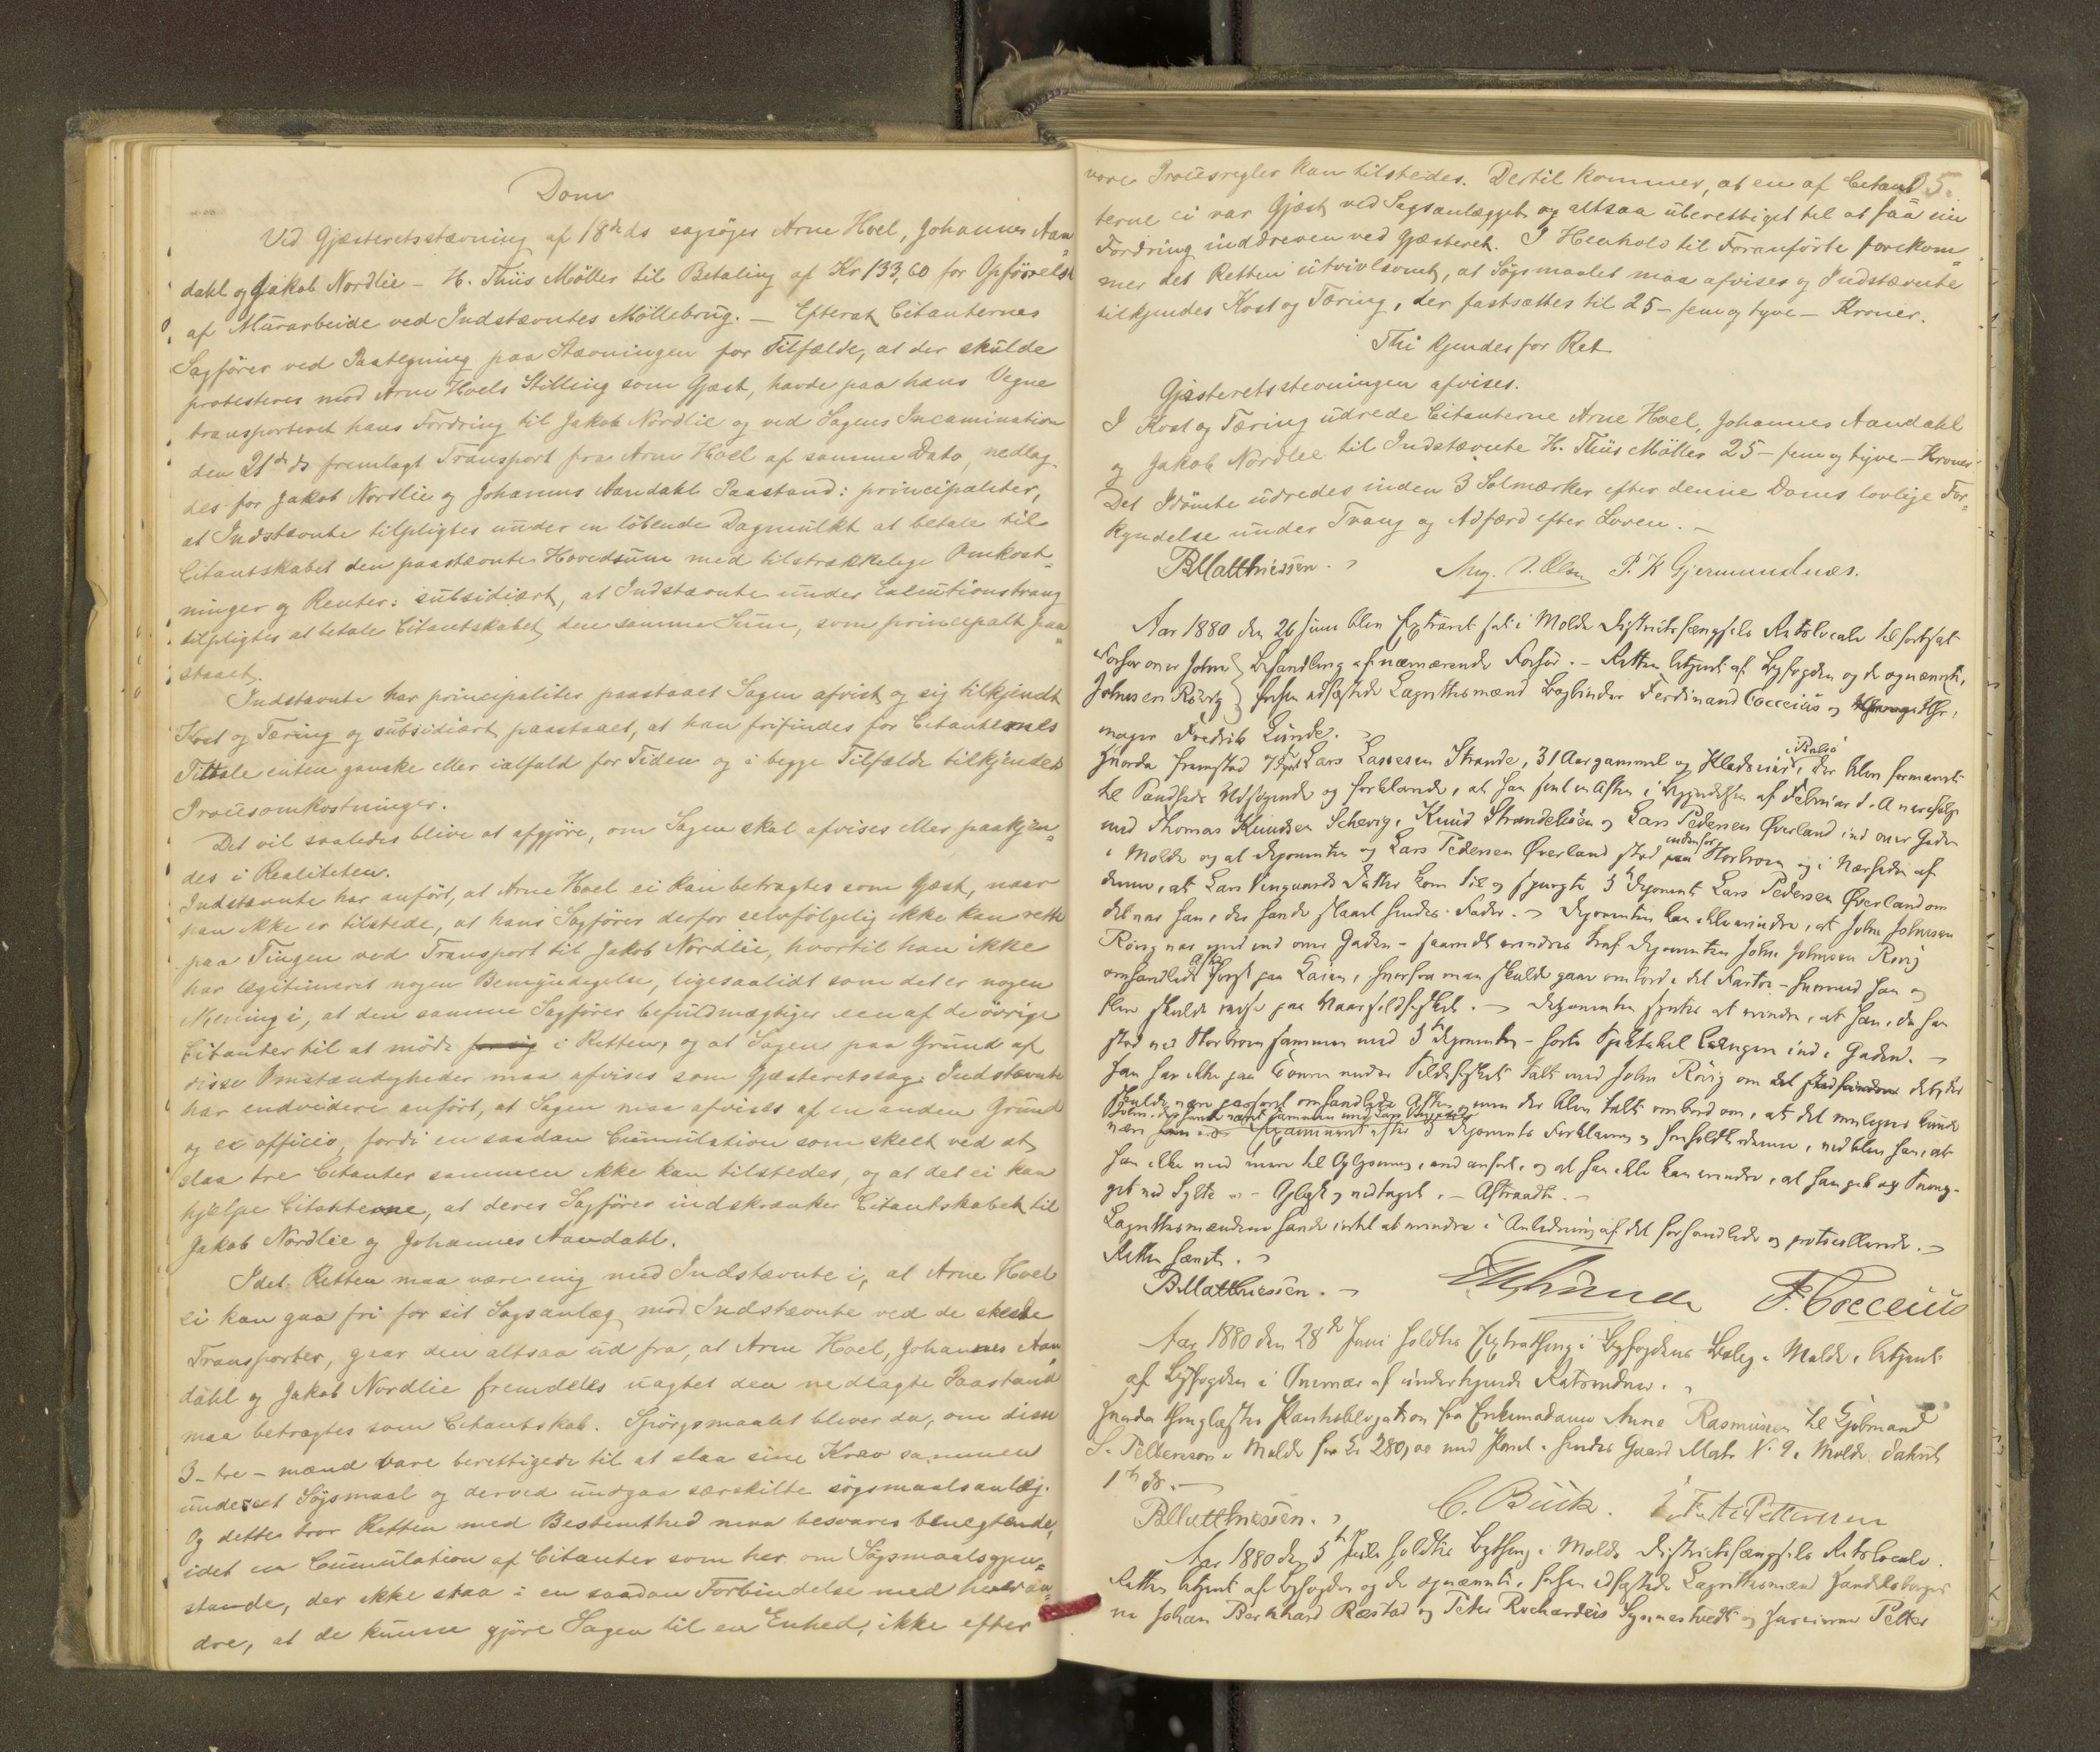 Dom
Ved Gjæsteretsstævning af 18de ds sagsøges Arne Hoel, Johannes Aan-
dahl og Jakob Nordlie – H. Thiis Möller til Betaling af Kr 133,60 for Opförelse
af Murarbeide ved Indstævntes Möllebrug. – Efterat Citanternes
Sagförer ved Paategning paa Stævningen for Tilfælde, at der skulde
protesteres mod Arne Hoels Stilling som Gjæst, havde paa hans Vegne
transporteret hans Fordring til Jakob Nordlie og ved Sagens Incamination
den 21de ds fremlagt Transport fra Arne Hoel af samme Dato, nedlag-
des for Jakob Nordlie og Johannes Aandahl Paastand: principaliter,
at Indstævnte tilpligtes under en löbende Dagmulkt at betale til
Citantskabet den paastævnte Hovedsum med tilstrækkelige Omkost-
ninger og Renter: subsidiært, at Indstævnte under Executionstvang
tilpligtes at betale Citantskabet den samme Sum, som principalt paa-
staaet.
Indstævnte har principaliter paastaaet Sagen afvist og sig tilkjendt
Kost og Tæring og subsidiært paastaaet, at han frifindes for Citanternes
Tiltale enten ganske eller ialfald for Tiden og i begge Tilfælde tilkjendes
Procesomkostninger.
Det vil saaledes blive at afgjöre, om Sagen skal afvises eller paakjen-
des i Realiteten.
Indstævnte har anfört, at Arne Hoel ei kan betragtes som Gjæst, naar
han ikke er tilstede, at hans Sagförer derfor selvfölgelig ikke kan rette
paa Tingen ved Transport til Jakob Nordlie, hvortil han ikke
har legitimeret nogen Bemyndigelse, ligesaalidt som det er nogen
Mening i, at den samme Sagförer befuldmægtiger een af de övrige
Citanter til at möde for sig i Retten, og at Sagen paa Grund af
disse Omstændigheder maa afvises som Gjæsteretssag. Indstævnte
har endvidere anfört, at Sagen maa afvises af en anden Grund
og ex officio, fordi en saadan Cumulation som skeet ved at
slaa tre Citanter sammen ikke kan tilstedes, og at det ei kan
hjælpe Citanterne, at deres Sagförer indskrænker Citantskabet til
Jakob Nordlie og Johannes Aandahl.
Idet Retten maa være enig med Indstævnte i, at Arne Hoel
ei kan gaa fri for sit Sagsanlæg mod Indstævnte ved de skeede
Transporter, gaar den altsaa ud fra, at Arne Hoel, Johannes Aan-
dahl og Jakob Nordlie fremdeles uagtet den nedlagte Paastand
maa betragtes som Citantskab. Spörgsmaalet bliver da, om disse
3 – tre – mænd vare berettigede til at slaa sine Krav sammen
under eet Sögsmaal og derved undgaa særskilte sögsmaalsanlæg.
Og dette tror Retten med Bestemthed maa besvares benegtende,
idet en Cumulation af Citanter som her om Sögsmaalsgjen-
stande, der ikke staa i en saadan Forbindelse med hveran-
dre, at de kunne gjöre Sagen til en Enhed, ikke efter
5.
vore Procesregler kan tilstedes. Dertil kommer, at en af Citan-
terne ei var Gjæst ved Sagsanlægget og altsaa uberettiget til at faa sin
Fordring inddreven ved Gjæsteret. I Henhold til Foranförte forekom-
mer det Retten utvivlsomt, at Sögsmaalet maa afvises og Indstævnte
tilkjendes Kost og Tæring, der fastsættes til 25 – fem og tyve – Kroner.
Thi kjendes for Ret
Gjæsteretsstevningen afvises.
I Kost og Tæring udrede Citanterne Arne Hoel, Johannes Aandahl
og Jakob Nordlie til Indstævnte H. Thiis Möller 25 – fem og tyve – Kroner
Det Idömte udredes inden 3 Solmærker efter denne Doms lovlige For-
kyndelse under Tvang og Adfærd efter Loven. –
BMatthiessen. Aug. V. Olsen P. K Gjermundnæs.
Aar 1880 den 26 Juni blev Extraret sat i Molde Districtsfængsels Retslocale til fortsat
Forhör over John behandling af nærværende Forhör. – Retten betjent af Byfogden og de opnævnte,
Johnsen Rövig forhen edfæstede Lagrettesmænd Bogbinder Ferdinand Coeceius og
mager Fredrik Lunde.
Hvorda fremstod 7de Lars Lassesen Strande, 31 Aar gammel og der blev formanet
til Sandheds Udsigende og forklarede, at han sent en Aften i Begyndelsen af Februar d. A
med Thomas Knudsen Schevig, Knud Strandeböen og Lars Pedersen Øverland ind over Gaden
i Molde og at Deponenten og Lars Pedersen Øverland stod udenfor Storbroen og i Nærheden af
denne, at Lars Vingaards Datter kom til og spurgte 5te Deponent Lars Pedersen Øverland om
det var han, der havde slaaet hendes Fader. – Deponenten kan ikke erindre, at John Johnsen
Rövig var med ind over Gaden – saavidt erindres traf Deponenten John Johnsen Rövig
omhandlede Aften först paa Kaien, hvorfra man skulde gaa ombord i det Fartöi – hvormed han og
flere skulde reise paa Vaarsildfisket. – Deponenten synes at erindre, at han, da han
stod ved Storbroen sammen med 5te Deponenten – hörte Spektakel længere ind i Gaden. –
Han har ikke paa Touren under Sildefisket talt med John Rövig om det, der
skulde være passeret omhandlede Aften, men der blev talt ombord om, at det muligens kunde
være
Examineret efter 5 Deponents Forklaring og foreholdt denne, vedblev han, at
han ikke ved mere til Oplysning, end anfört, og at han ikke kan erindre, at
– Oplæst og vedtaget. – Aftraadte. –
Lagrettesmændene havde intet at erindre i Anledning af det forhandlede og protocollerede. –
Retten hævet.
BMatthiessen. – F. Coeceius
Aar 1880 den 28de Juni holdtes Extrathing i Byfogdens Bolig i Molde, betjent
af Byfogden i Overvær af undertegnede Retsvidner.
Hvorda thinglæstes Panteobligation fra Enkemadame Anne Rasmussen til Kjöbmand
S. Pettersson i Molde for Kr 280,00 med Pant i hendes Gaard Matr N. 9 i Molde dateret
1te ds. –
BMatthiessen. C. Buck. Pettersen
Aar 1880 den 5te Juli holdtes Bything i Molde Districtsfængsels Retslocale.
Retten betjent af Byfogden og de opnævnte, forhen edfæstede Lagrettesmænd Handelsborger
ne Johan Bernhard Ræstad og Peter Rochardeis Synnestvedt og Petter